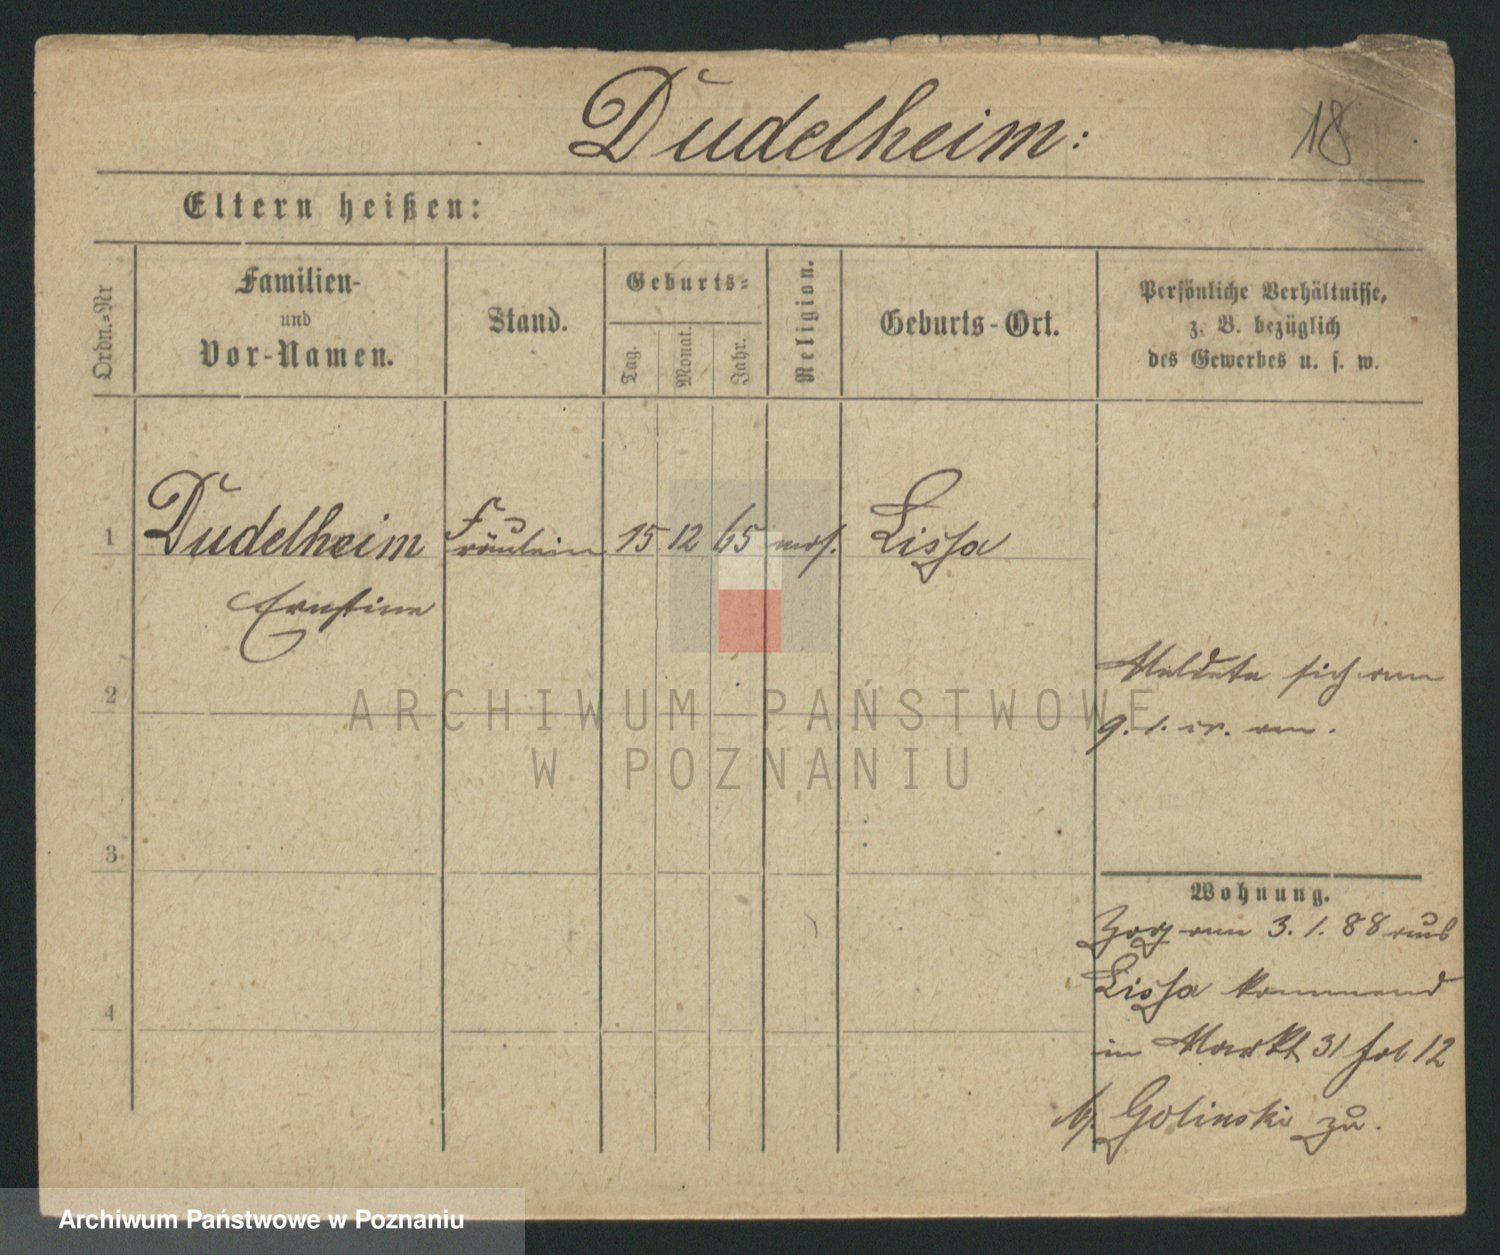 Dudelheim:
18
Eltern heißen:
Ordn.=Nr
Familien-
und
Vor-Namen.
Stand.
Geburts=
Tag.
Monat.
Jahr.
Religion.
Geburts-Ort.
Persönliche Verhältnisse,
z. B. bezüglich
des Gewerbes u. s. w.
1
Dudelheim
Fräulein
15
12
65
mos.
Lissa
Ernstine
Meldete sich am
9. 1. cr. an.
2
ARCHIWUM PAŃSTWOWE
W POZNANIU
3
Wohnung.
Zog am 3. 1. 88 aus
Lissa kommend
4
in Markt 31 12
b/ Golinski zu.
Archiwum Państwowe w Poznaniu